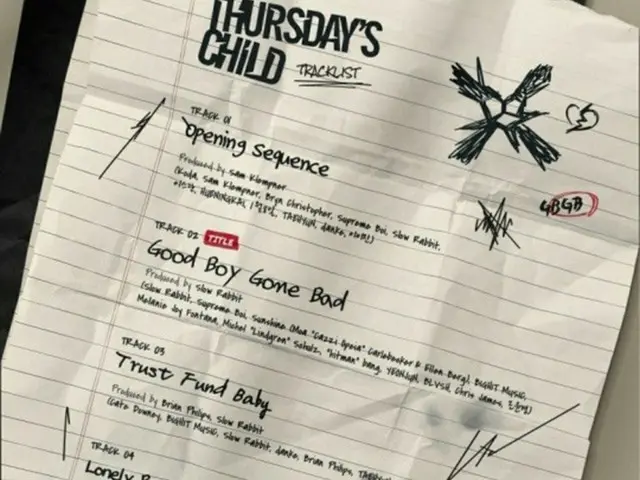 THURSDAY'S
CHILD TRACKLIST
TRACK 01
Opening Sequence
Produced by Sam Klempner
(Koda, Sam Klempner, Bryn Christopher, Supreme Boi, Slow Rabbit,
HUENINGKAI, TAEHYUN, danke,
GBGB
TRACK 02 TITLE
Good Boy Gone Bad
Produced by Slow Rabbit
(Slow Rabbit, Supreme Boi, Sunshine (Moa "Cazzi Opeia" Carlebecker & Ellen Berg), BIGHIT MUSIC,
Melanie Joy Fontana, Michel "Lindgren" Schulz, "hitman" bang, YEONJUN, BLVSH, Chris James,
TRACK 03
Trust Fund Baby
Produced by Brian Phillips, Slow Rabbit
(Cate Downey, BIGHIT MUSIC, Slow Rabbit, danke, Brian Phillips,
TRACK 04
Lonely